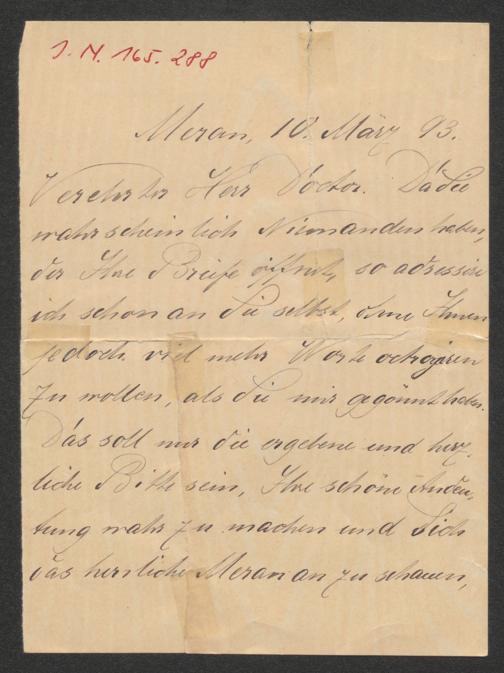 J. N. 165.288
Meran, 10. März 93.
Verehrter Herr Doctor. Da Sie
wahrscheinlich Niemanden haben,
der Ihre Briefe öffnet, so adressire
ich schon an Sie selbst, ohne Ihnen
jedoch viel mehr Worte octroyiren
zu wollen, als Sie mir gegönnt haben.
Das soll nur die ergebene und herz-
liche Bitte sein, Ihre schöne Andeu-
tung wahr zu machen und Sich
das herrliche Meran an zu schauen,